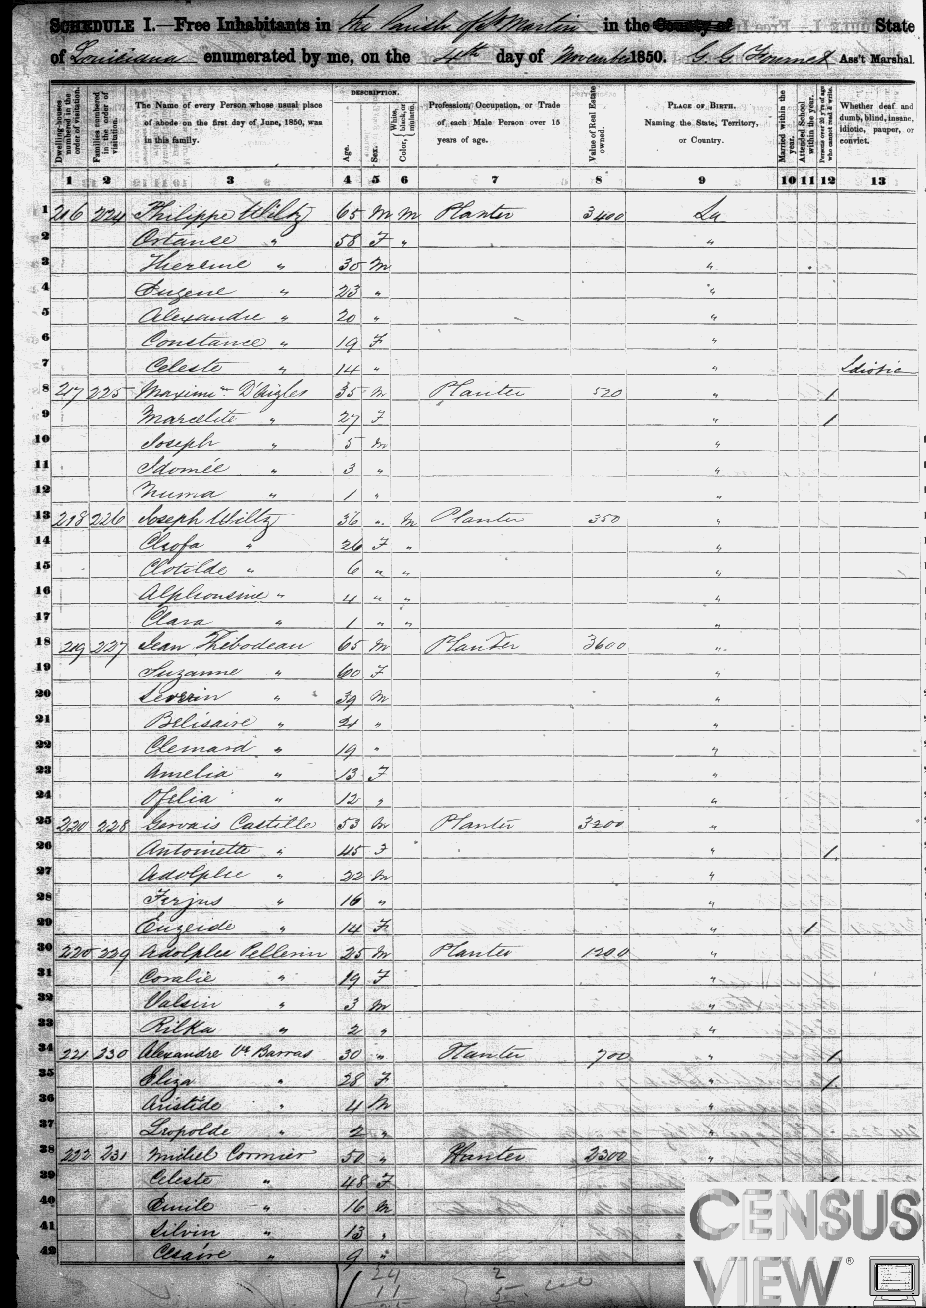 SCHEDULE I.—Free Inhabitants in the Parish of St Martin in the County of State
of Louisiana enumerated by me, on the 4th day of November 1850. G. G. Fournet Ass't Marshal.
Dwelling-houses numbered in the order of visitation.
Families numbered in the order of visitation.
The Name of every Person whose usual place of abode on the first day of June, 1850, was in this family.
DESCRIPTION.
Age.
Sex.
Color, { White, black, or mulatto.
Profession, Occupation, or Trade of each Male Person over 15 years of age.
Value of Real Estate owned.
PLACE OF BIRTH. Naming the State, Territory, or Country.
Married within the year.
Attended School within the year.
Persons over 20 y'rs of age who cannot read & write.
Whether deaf and dumb, blind, insane, idiotic, pauper, or convict.
1 2 3 4 5 6 7 8 9 10 11 12 13
1 216 224 Philippe Wiltz 65 M M Planter 3400 La
2 Ortance " 58 F " "
3 Therme " 30 M "
4 Eugene " 23 " "
5 Alexandre " 20 " "
6 Constance " 19 F "
7 Celeste " 14 " " Idiotic
8 217 225 Maximin D'Aigles 35 M Planter 520 " 1
9 Marcelite " 27 F " 1
10 Joseph " 5 M "
11 Idomée " 3 " "
12 Numa " 1 " "
13 218 226 Joseph Wiltz 36 " M Planter 350 "
14 Cleofa " 26 F " "
15 Clotilde " 6 " " "
16 Alphonsine " 4 " " "
17 Clara " 1 " " "
18 219 227 Jean Thibodeau 65 M Planter 3600 "
19 Suzanne " 60 F "
20 Severin " 39 M "
21 Belisaire " 21 " "
22 Clemard " 19 " "
23 Amelia " 13 F "
24 Ofelia " 12 " "
25 220 228 Gervais Castille 53 M Planter 3200 "
26 Antoinette " 45 F " 1
27 Adolphe " 22 M "
28 Ferjus " 16 " "
29 Euzeide " 14 F " 1
30 220 229 Adolphe Pellerin 25 M Planter 1200 "
31 Coralie " 19 F "
32 Valsin " 3 M "
33 Rilka " 2 " "
34 221 330 Alexandre Ve Barras 30 " Planter 700 " 1
35 Eliza " 28 F " 1
36 Aristide " 4 M "
37 Leopolde " 2 " "
38 222 231 Michel Cormier 50 " Planter 2300 "
39 Celeste " 48 F " 1
40 Emile " 16 M
41 Silvin " 13 "
42 Cesaire " 9 "
24 2
11 5
CENSUS
VIEW®